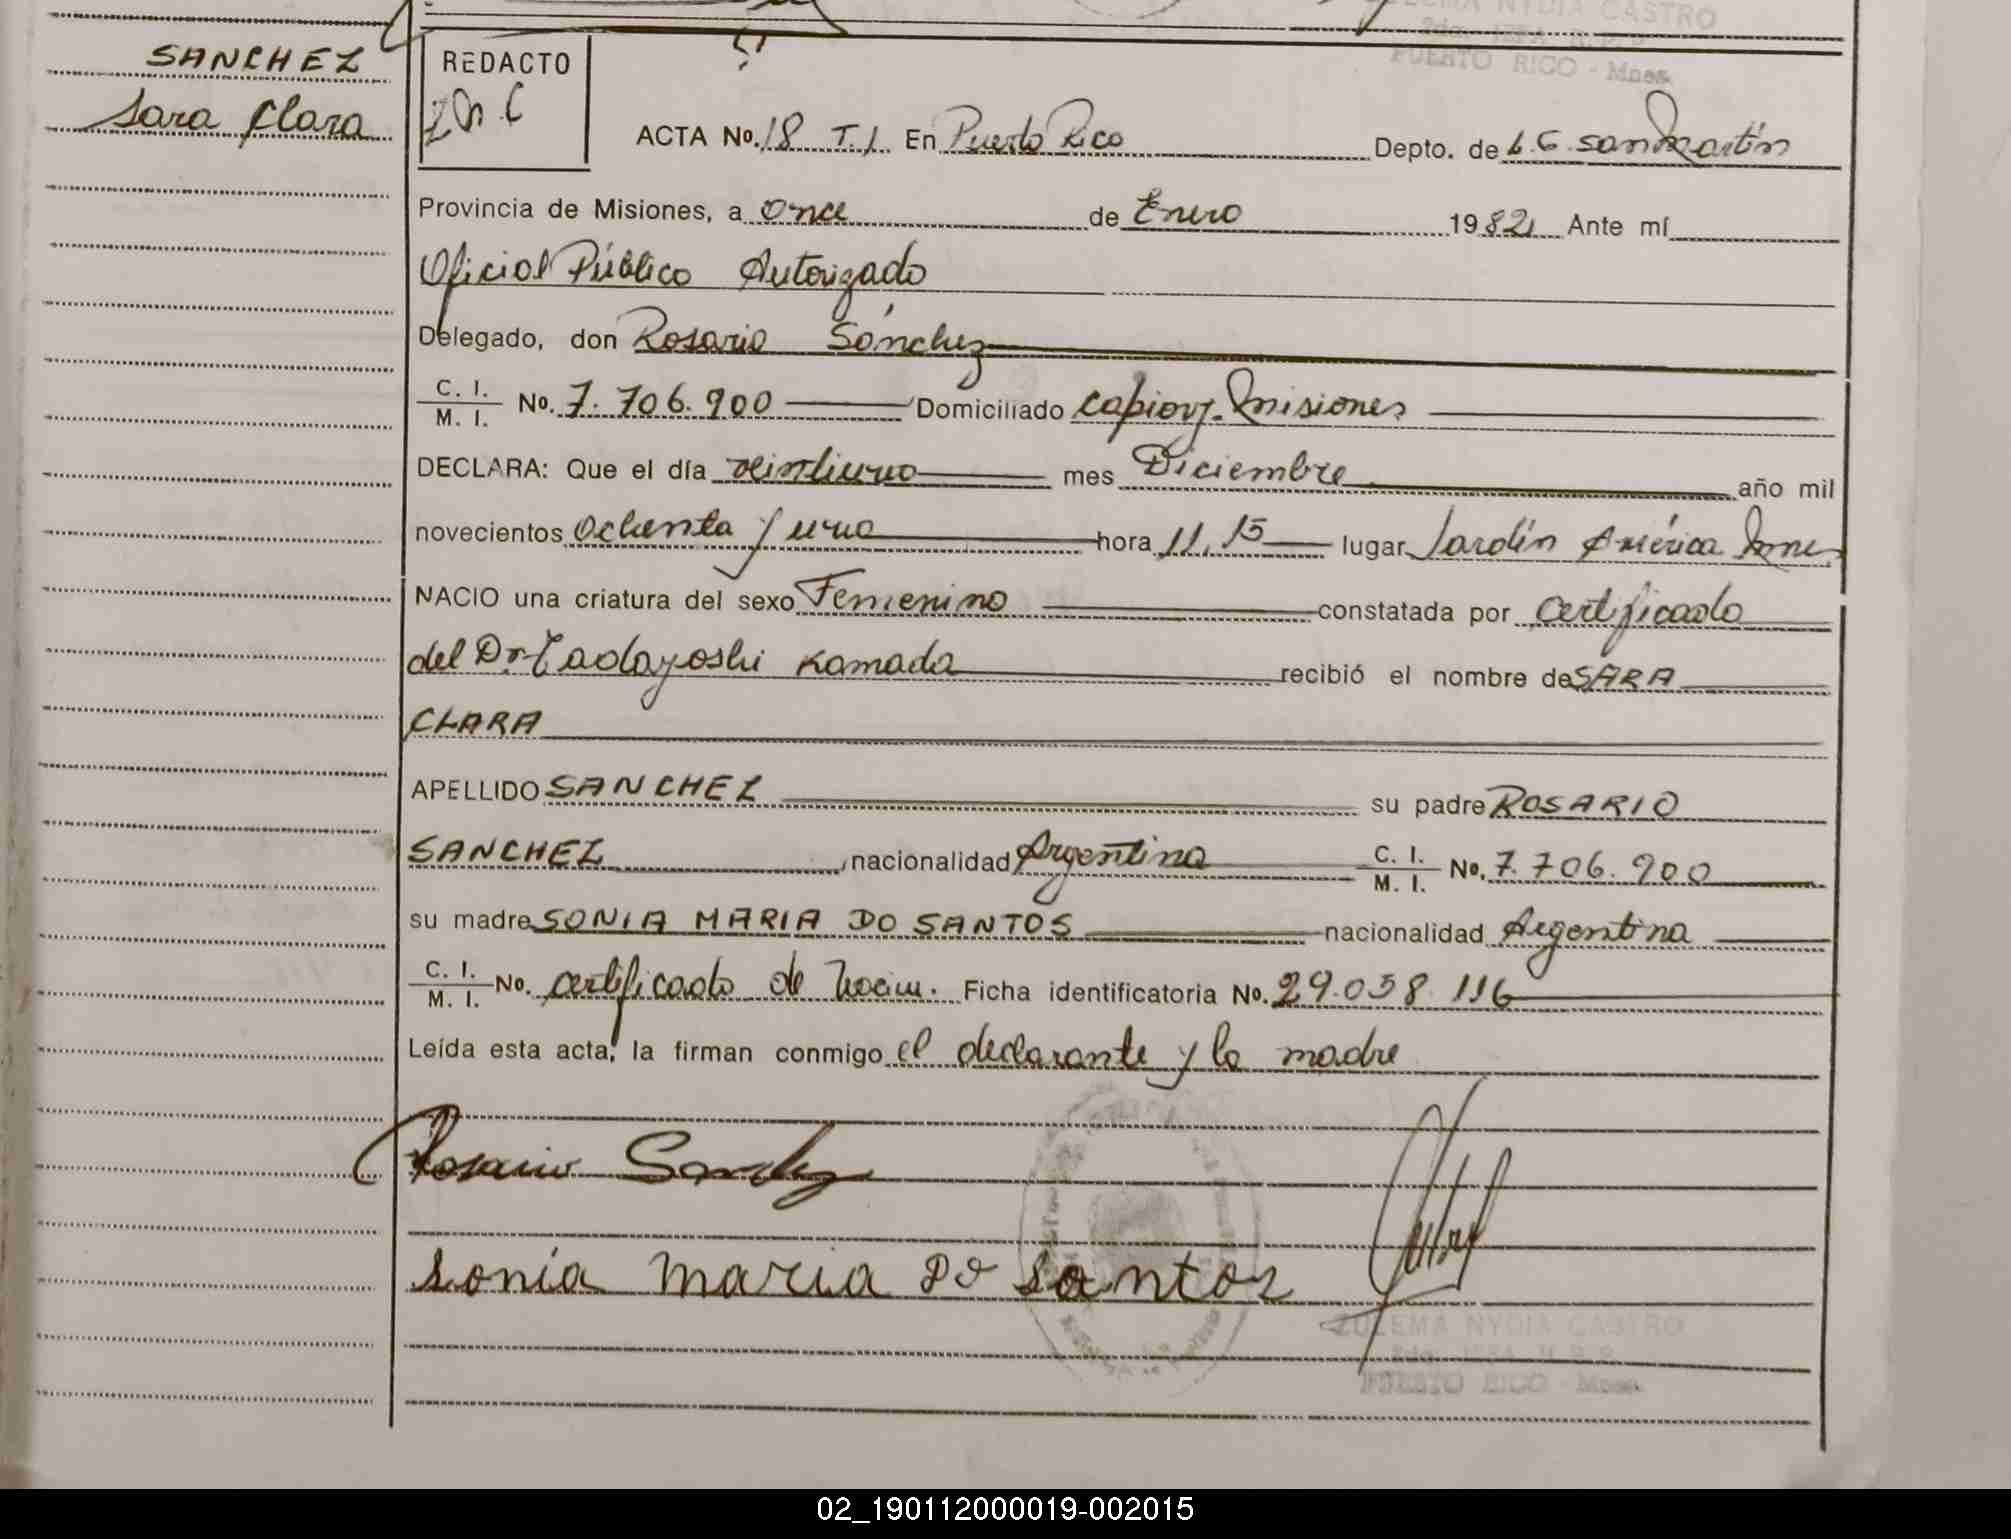 ZULEMA NYDIA CASTRO
PUERTO RICO - Mnes.
SANCHEZ
Sara Clara
REDACTO
ZNC
ACTA No. 18 T.I En Puerto Rico Depto. de L.G. San Martín
Provincia de Misiones, a Once de Enero 1982 Ante mí
Oficial Público Autorizado
Delegado, don Rosario Sánchez
C. I. / M. I. No. 7.706.900 Domiciliado Capioví-Misiones
DECLARA: Que el día veintiuno mes Diciembre año mil
novecientos ochenta y uno hora 11,15 lugar Jardín América Mnes
NACIO una criatura del sexo Femenino constatada por certificado
del Dr. Tadayoshi Kamada recibió el nombre de SARA
CLARA
APELLIDO SANCHEZ su padre ROSARIO
SANCHEZ, nacionalidad Argentina C. I. / M. I. No. 7.706.900
su madre SONIA MARIA DO SANTOS nacionalidad Argentina
C. I. / M. I. No. certificado de nacim. Ficha identificatoria No. 29.058.116
Leída esta acta, la firman conmigo el declarante y la madre
Rosario Sanchez
Sonia Maria Do Santos
ZULEMA NYDIA CASTRO
PUERTO RICO - Mnes.
02_190112000019-002015